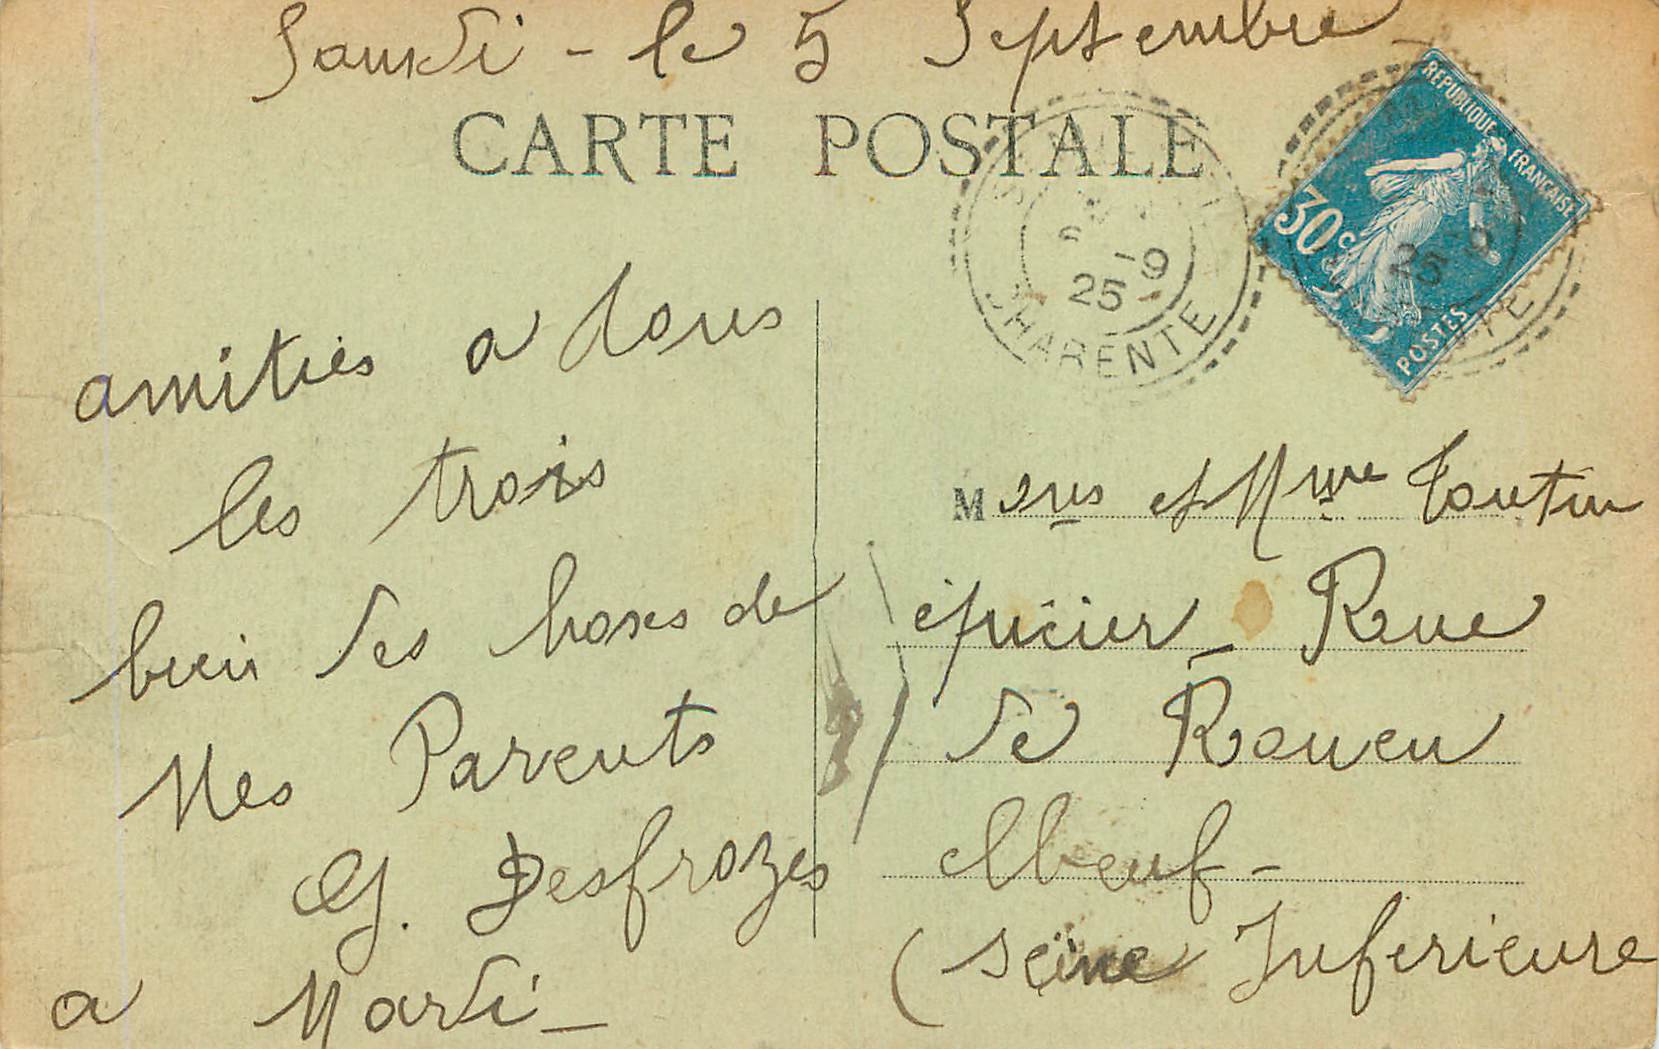 Samdi - le 5 Septembre
CARTE POSTALE
REPUBLIQUE FRANÇAISE
30c
POSTES
-9
25
CHARENTE
25
amitiés a tous
les trois
bien des choses de
Mes Parents
G. Desfrozes
a Mardi -
Mons et Mme Toutin
épicier - Rue
de Rouen
Elbeuf -
(Seine Inferieure